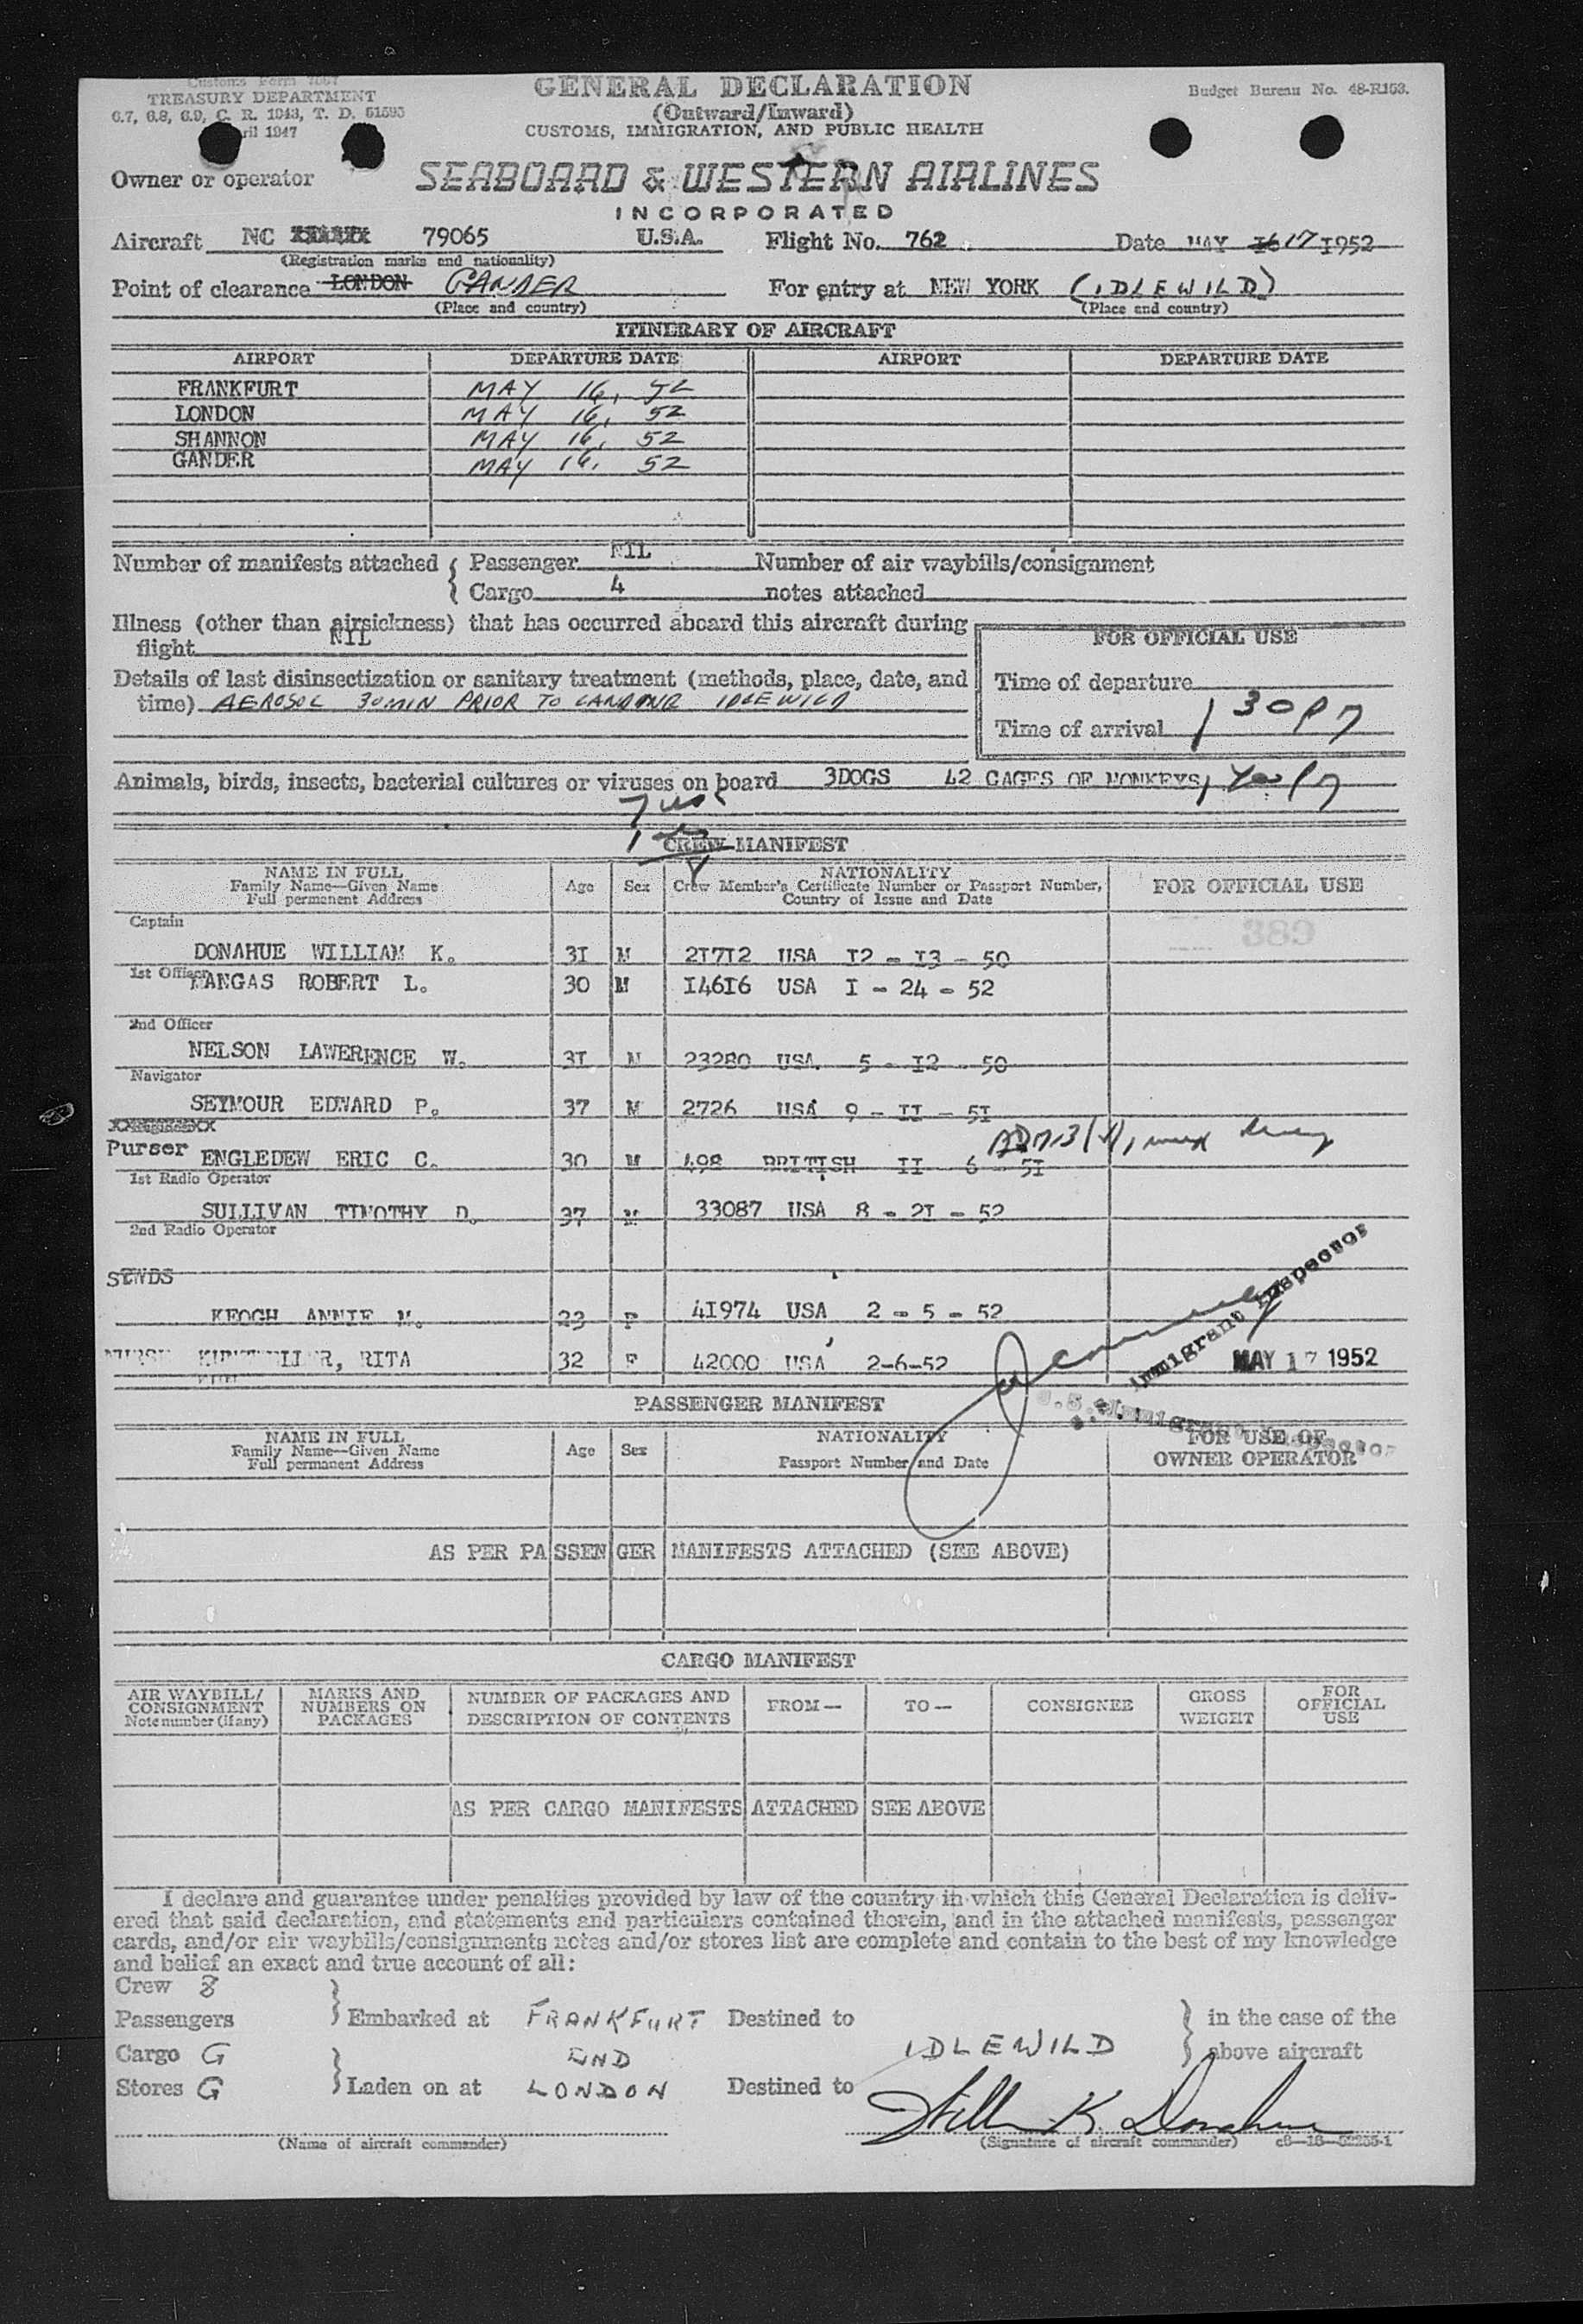 Customs Form 7507
TREASURY DEPARTMENT
6.7, 6.8, 6.9, C. R. 1943, T. D. 51595
ril 1947
GENERAL DECLARATION
(Outward/Inward)
CUSTOMS, IMMIGRATION, AND PUBLIC HEALTH
Budget Bureau No. 48-R153.
Owner or operator SEABOARD & WESTERN AIRLINES
INCORPORATED
Aircraft NC 79065 U.S.A. Flight No. 762 Date MAY 16 17 1952
(Registration marks and nationality)
Point of clearance LONDON GANDER For entry at NEW YORK (IDLEWILD)
(Place and country) (Place and country)
ITINERARY OF AIRCRAFT
AIRPORT DEPARTURE DATE AIRPORT DEPARTURE DATE
FRANKFURT MAY 16, 52
LONDON MAY 16, 52
SHANNON MAY 16, 52
GANDER MAY 16, 52
Number of manifests attached { Passenger NIL Number of air waybills/consignment
Cargo 4 notes attached
Illness (other than airsickness) that has occurred aboard this aircraft during
flight NIL
FOR OFFICIAL USE
Details of last disinsectization or sanitary treatment (methods, place, date, and
time) AEROSOL 30MIN PRIOR TO LANDING IDLEWILD
Time of departure
Time of arrival 1 30 PM
Animals, birds, insects, bacterial cultures or viruses on board 3DOGS 42 CAGES OF MONKEYS,
CREW MANIFEST
NAME IN FULL
Family Name—Given Name
Full permanent Address
Age Sex
NATIONALITY
Crew Member's Certificate Number or Passport Number,
Country of Issue and Date
FOR OFFICIAL USE
389
Captain
DONAHUE WILLIAM K. 3I M 2I7I2 USA I2 - I3 - 50
1st Officer
MANGAS ROBERT L. 30 M I46I6 USA I - 24 - 52
2nd Officer
NELSON LAWERENCE W. 3I M 23280 USA 5 - I2 - 50
Navigator
SEYMOUR EDWARD P. 37 M 2726 USA 9 - II - 5I
Purser ENGLEDEW ERIC C. 30 M 498 BRITISH II 6 - 5I
1st Radio Operator
SULLIVAN TIMOTHY D. 37 M 33087 USA 8 - 2I - 52
2nd Radio Operator
STWDS
KEOGH ANNIE M. 23 F 4I974 USA 2 - 5 - 52
RITA 32 F 42000 USA 2-6-52
Immigrant Inspector
MAY 17 1952
PASSENGER MANIFEST
U.S. Immigrant Inspector
NAME IN FULL
Family Name—Given Name
Full permanent Address
Age Sex
NATIONALITY
Passport Number and Date
FOR USE OF
OWNER OPERATOR
AS PER PASSENGER MANIFESTS ATTACHED (SEE ABOVE)
CARGO MANIFEST
AIR WAYBILL/
CONSIGNMENT
Note number (if any)
MARKS AND
NUMBERS ON
PACKAGES
NUMBER OF PACKAGES AND
DESCRIPTION OF CONTENTS
FROM—
TO—
CONSIGNEE
GROSS
WEIGHT
FOR
OFFICIAL
USE
AS PER CARGO MANIFESTS ATTACHED SEE ABOVE
I declare and guarantee under penalties provided by law of the country in which this General Declaration is deliv-
ered that said declaration, and statements and particulars contained therein, and in the attached manifests, passenger
cards, and/or air waybills/consignments notes and/or stores list are complete and contain to the best of my knowledge
and belief an exact and true account of all:
Crew 8
Passengers } Embarked at FRANKFURT Destined to } in the case of the
Cargo G AND IDLEWILD above aircraft
Stores G } Laden on at LONDON Destined to
William K. Donahue
(Name of aircraft commander) (Signature of aircraft commander) c8—16—52255-1